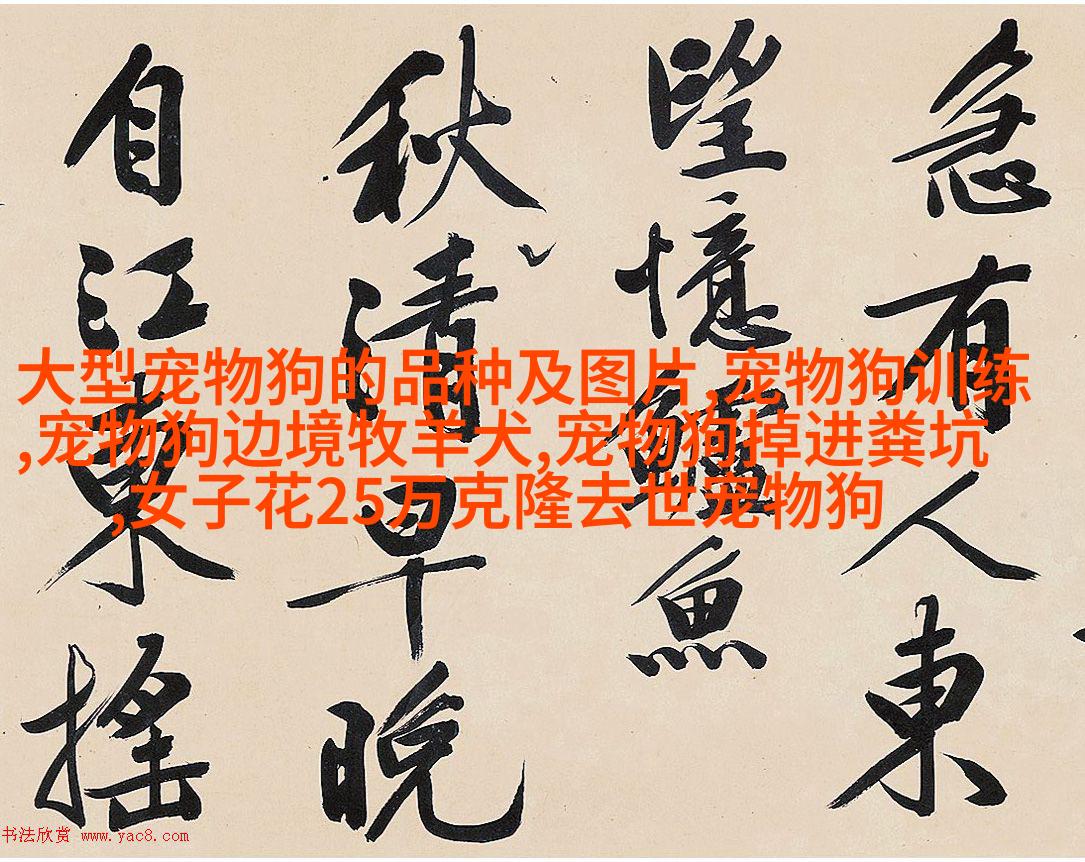 急有人東
望憶鱸魚
秋清早晚
自江東搖
大型宠物狗的品种及图片,宠物狗训练
,宠物狗边境牧羊犬,宠物狗掉进粪坑
,女子花25万克隆去世宠物狗
书法欣赏 www.yac8.com